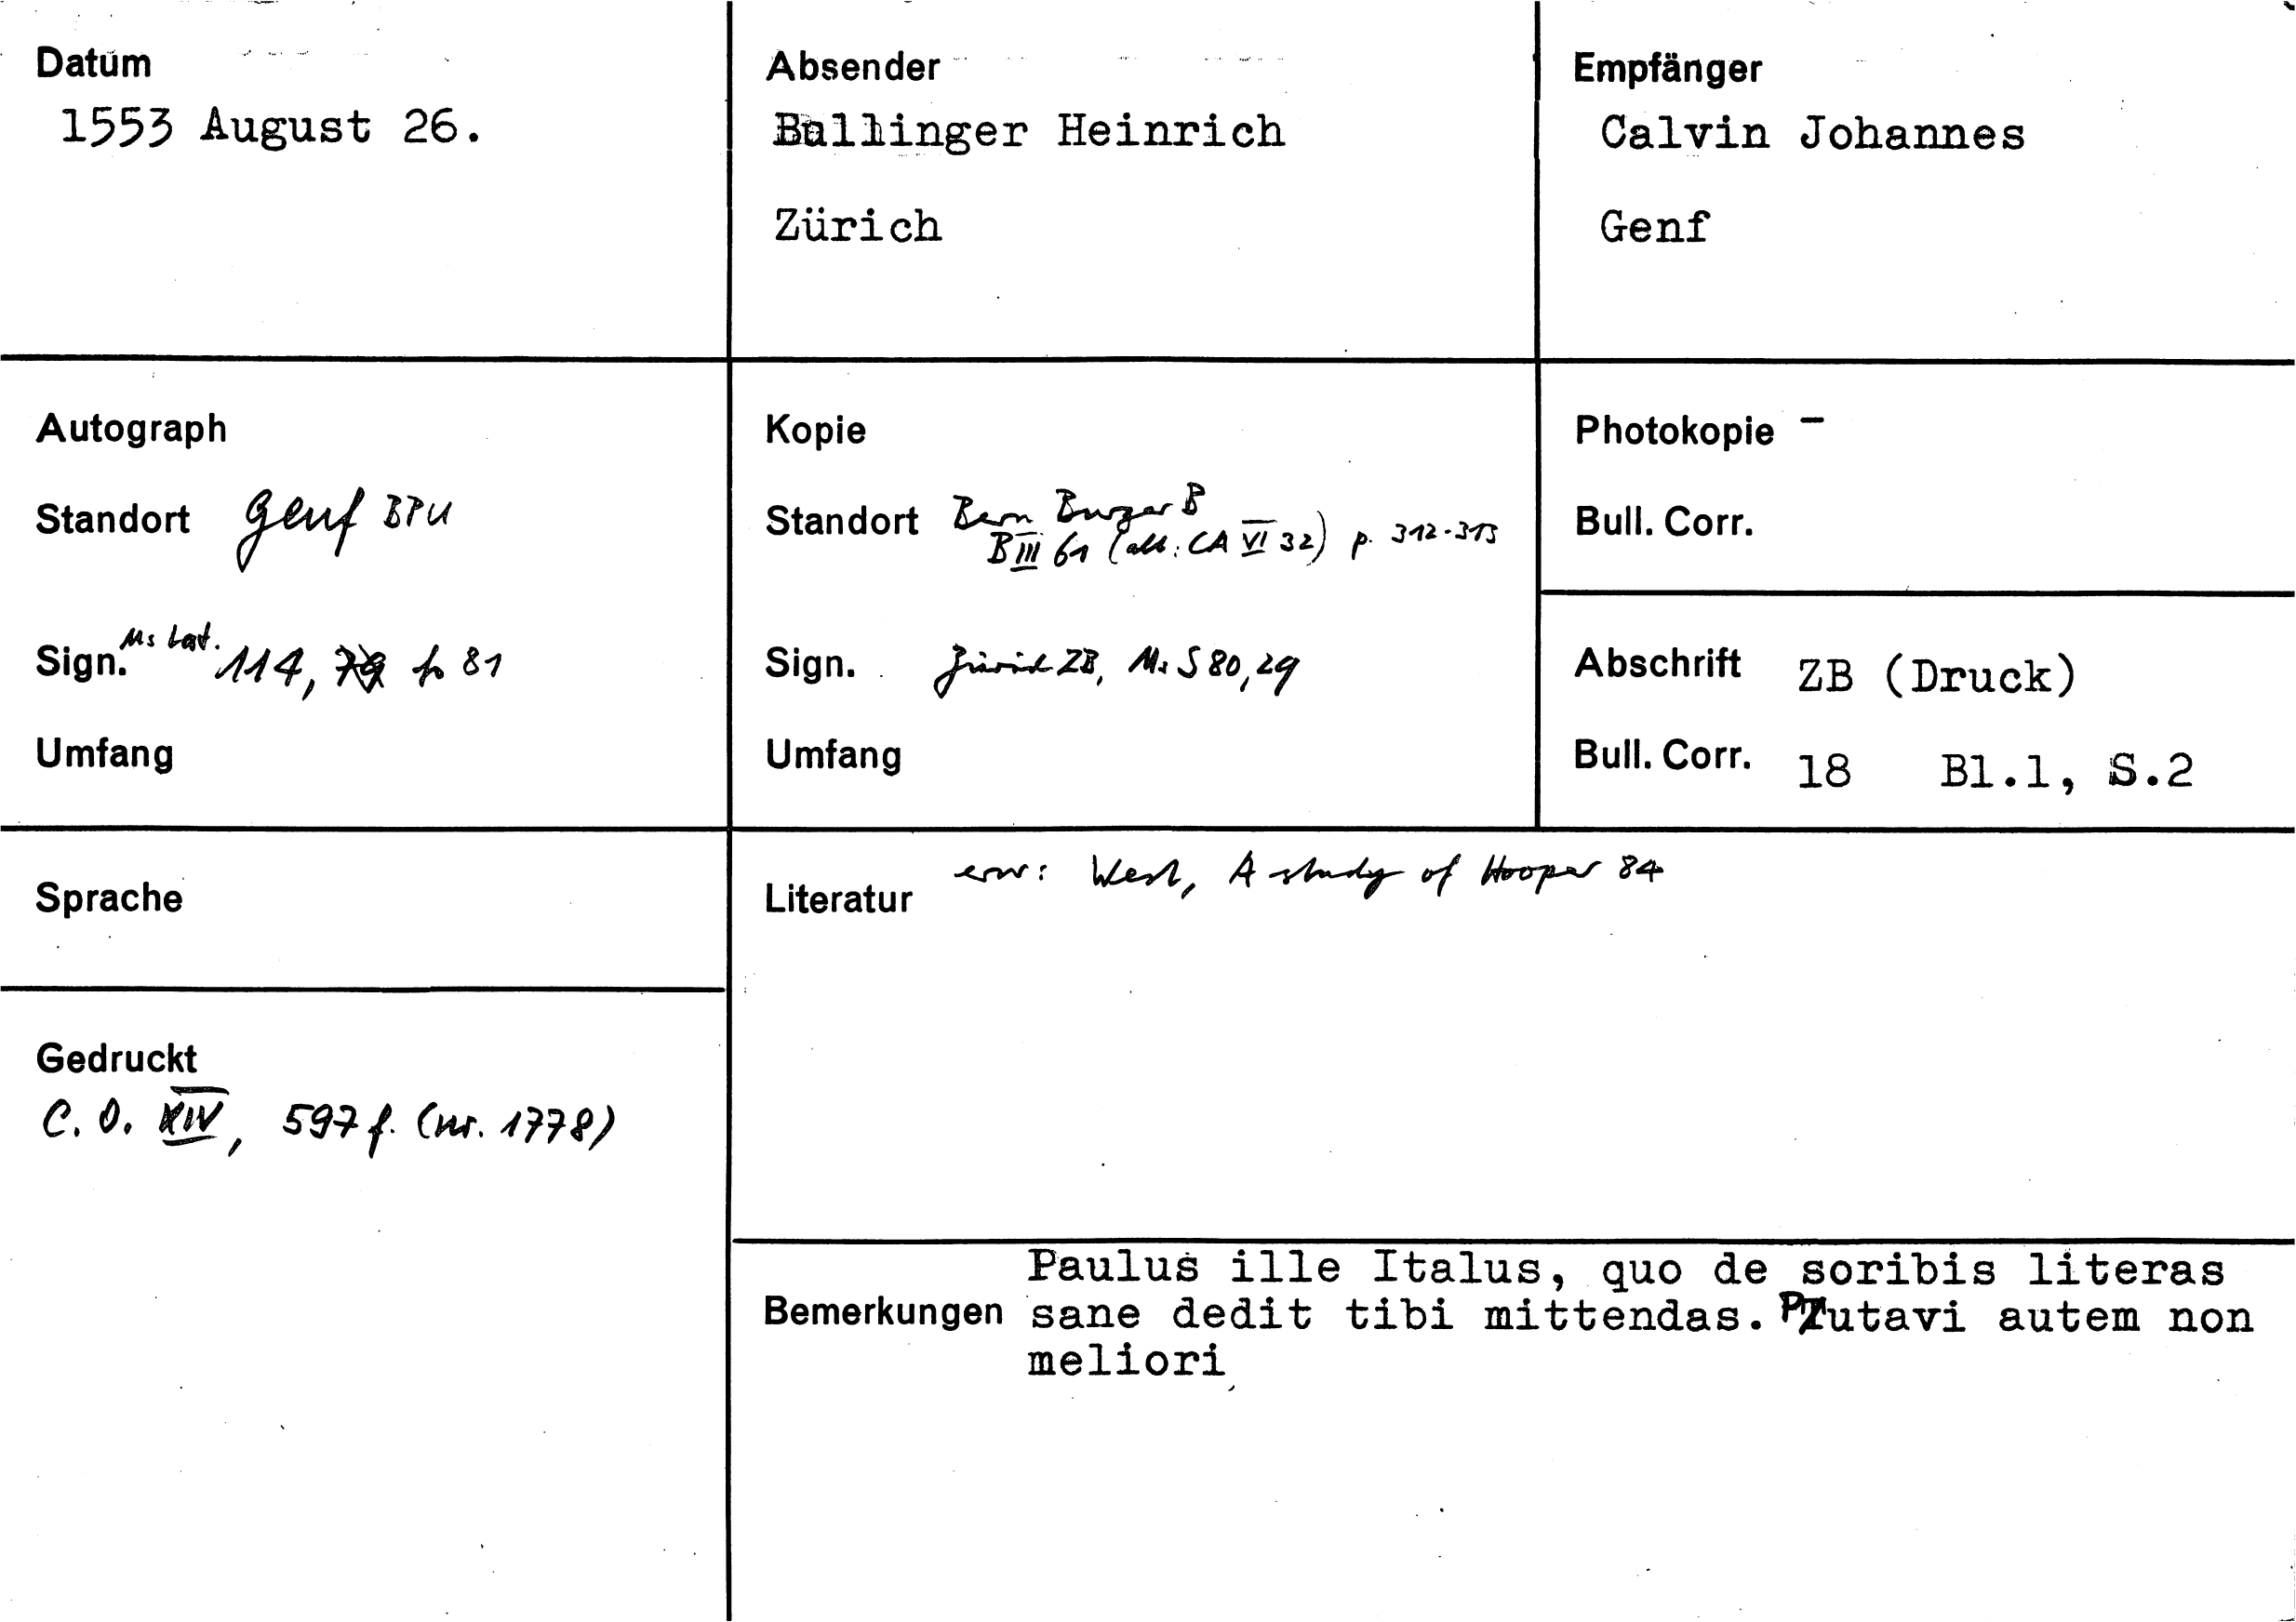 Datum
1553 August 26.
Absender
Bullinger Heinrich
Zürich
Empfänger
Calvin Johannes
Genf
Autograph
Standort Genf BPU
Sign. Ms Lat. 114, 79 fo 81
Umfang
Kopie
Standort Bern Burger B
B III 61 (alt: CA VI 32) p. 312-313
Sign. Zürich ZB, Ms S 80, 29
Umfang
Photokopie -
Bull. Corr.
Abschrift ZB (Druck)
Bull. Corr. 18 Bl.1, S.2
Sprache
Gedruckt
C. O. XIV, 597 f. (nr. 1778)
Literatur erw: West, A study of Hooper 84
Bemerkungen
Paulus ille Italus, quo de soribis literas
sane dedit tibi mittendas. Putavi autem non
meliori